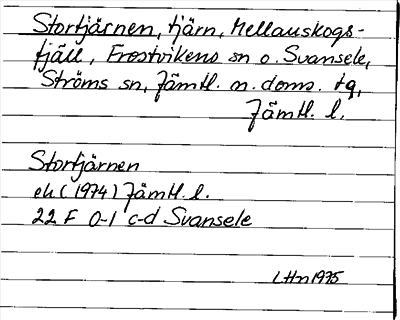 Stortjärnen, tjärn, Mellanskogs-
fjäll, Frostvikens sn o. Svansele,
Ströms sn, Jämtl. n. doms. tg,
Jämtl. l.
Stortjärnen
ek (1974) Jämtl. l.
22 F 0-1 c-d Svansele
LHn 1975